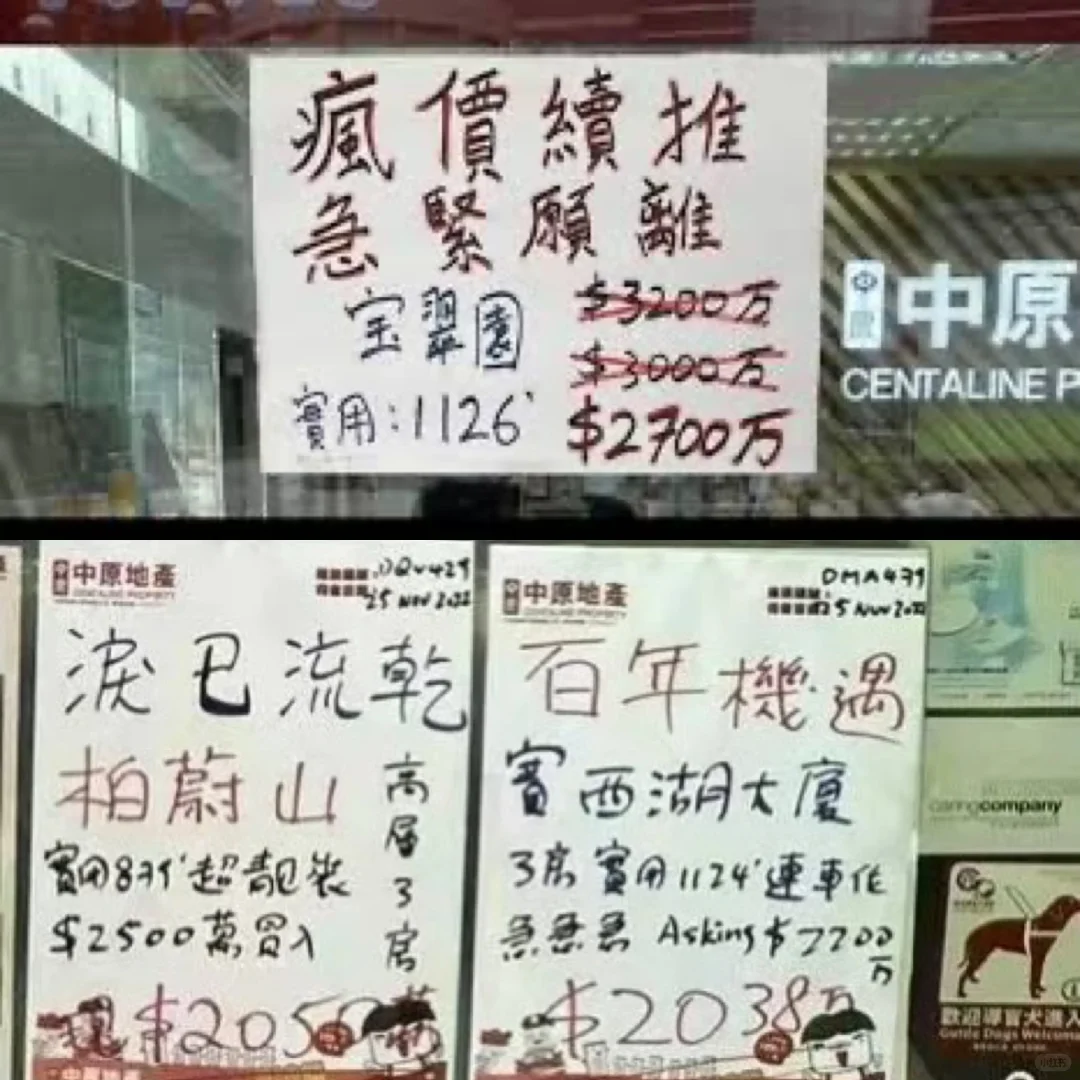 瘋價續推
急緊願離
宝翠園
實用：1126'
$3200万
$3000万
$2700万
中原
CENTALINE P
中原地產
CENTALINE PROPERTY
25 NOV 2022
淚已流乾
柏蔚山
高層3房
實用871'超靚裝
$2500萬買入
現$2050萬
中原地產
中原地產
CENTALINE PROPERTY
DMA479
25 NOV 2022
百年機遇
賽西湖大廈
3房實用1124'連車位
急急急 Asking $2200万
$2038万
caringcompany
歡迎導盲犬進入
Guide Dogs Welcome